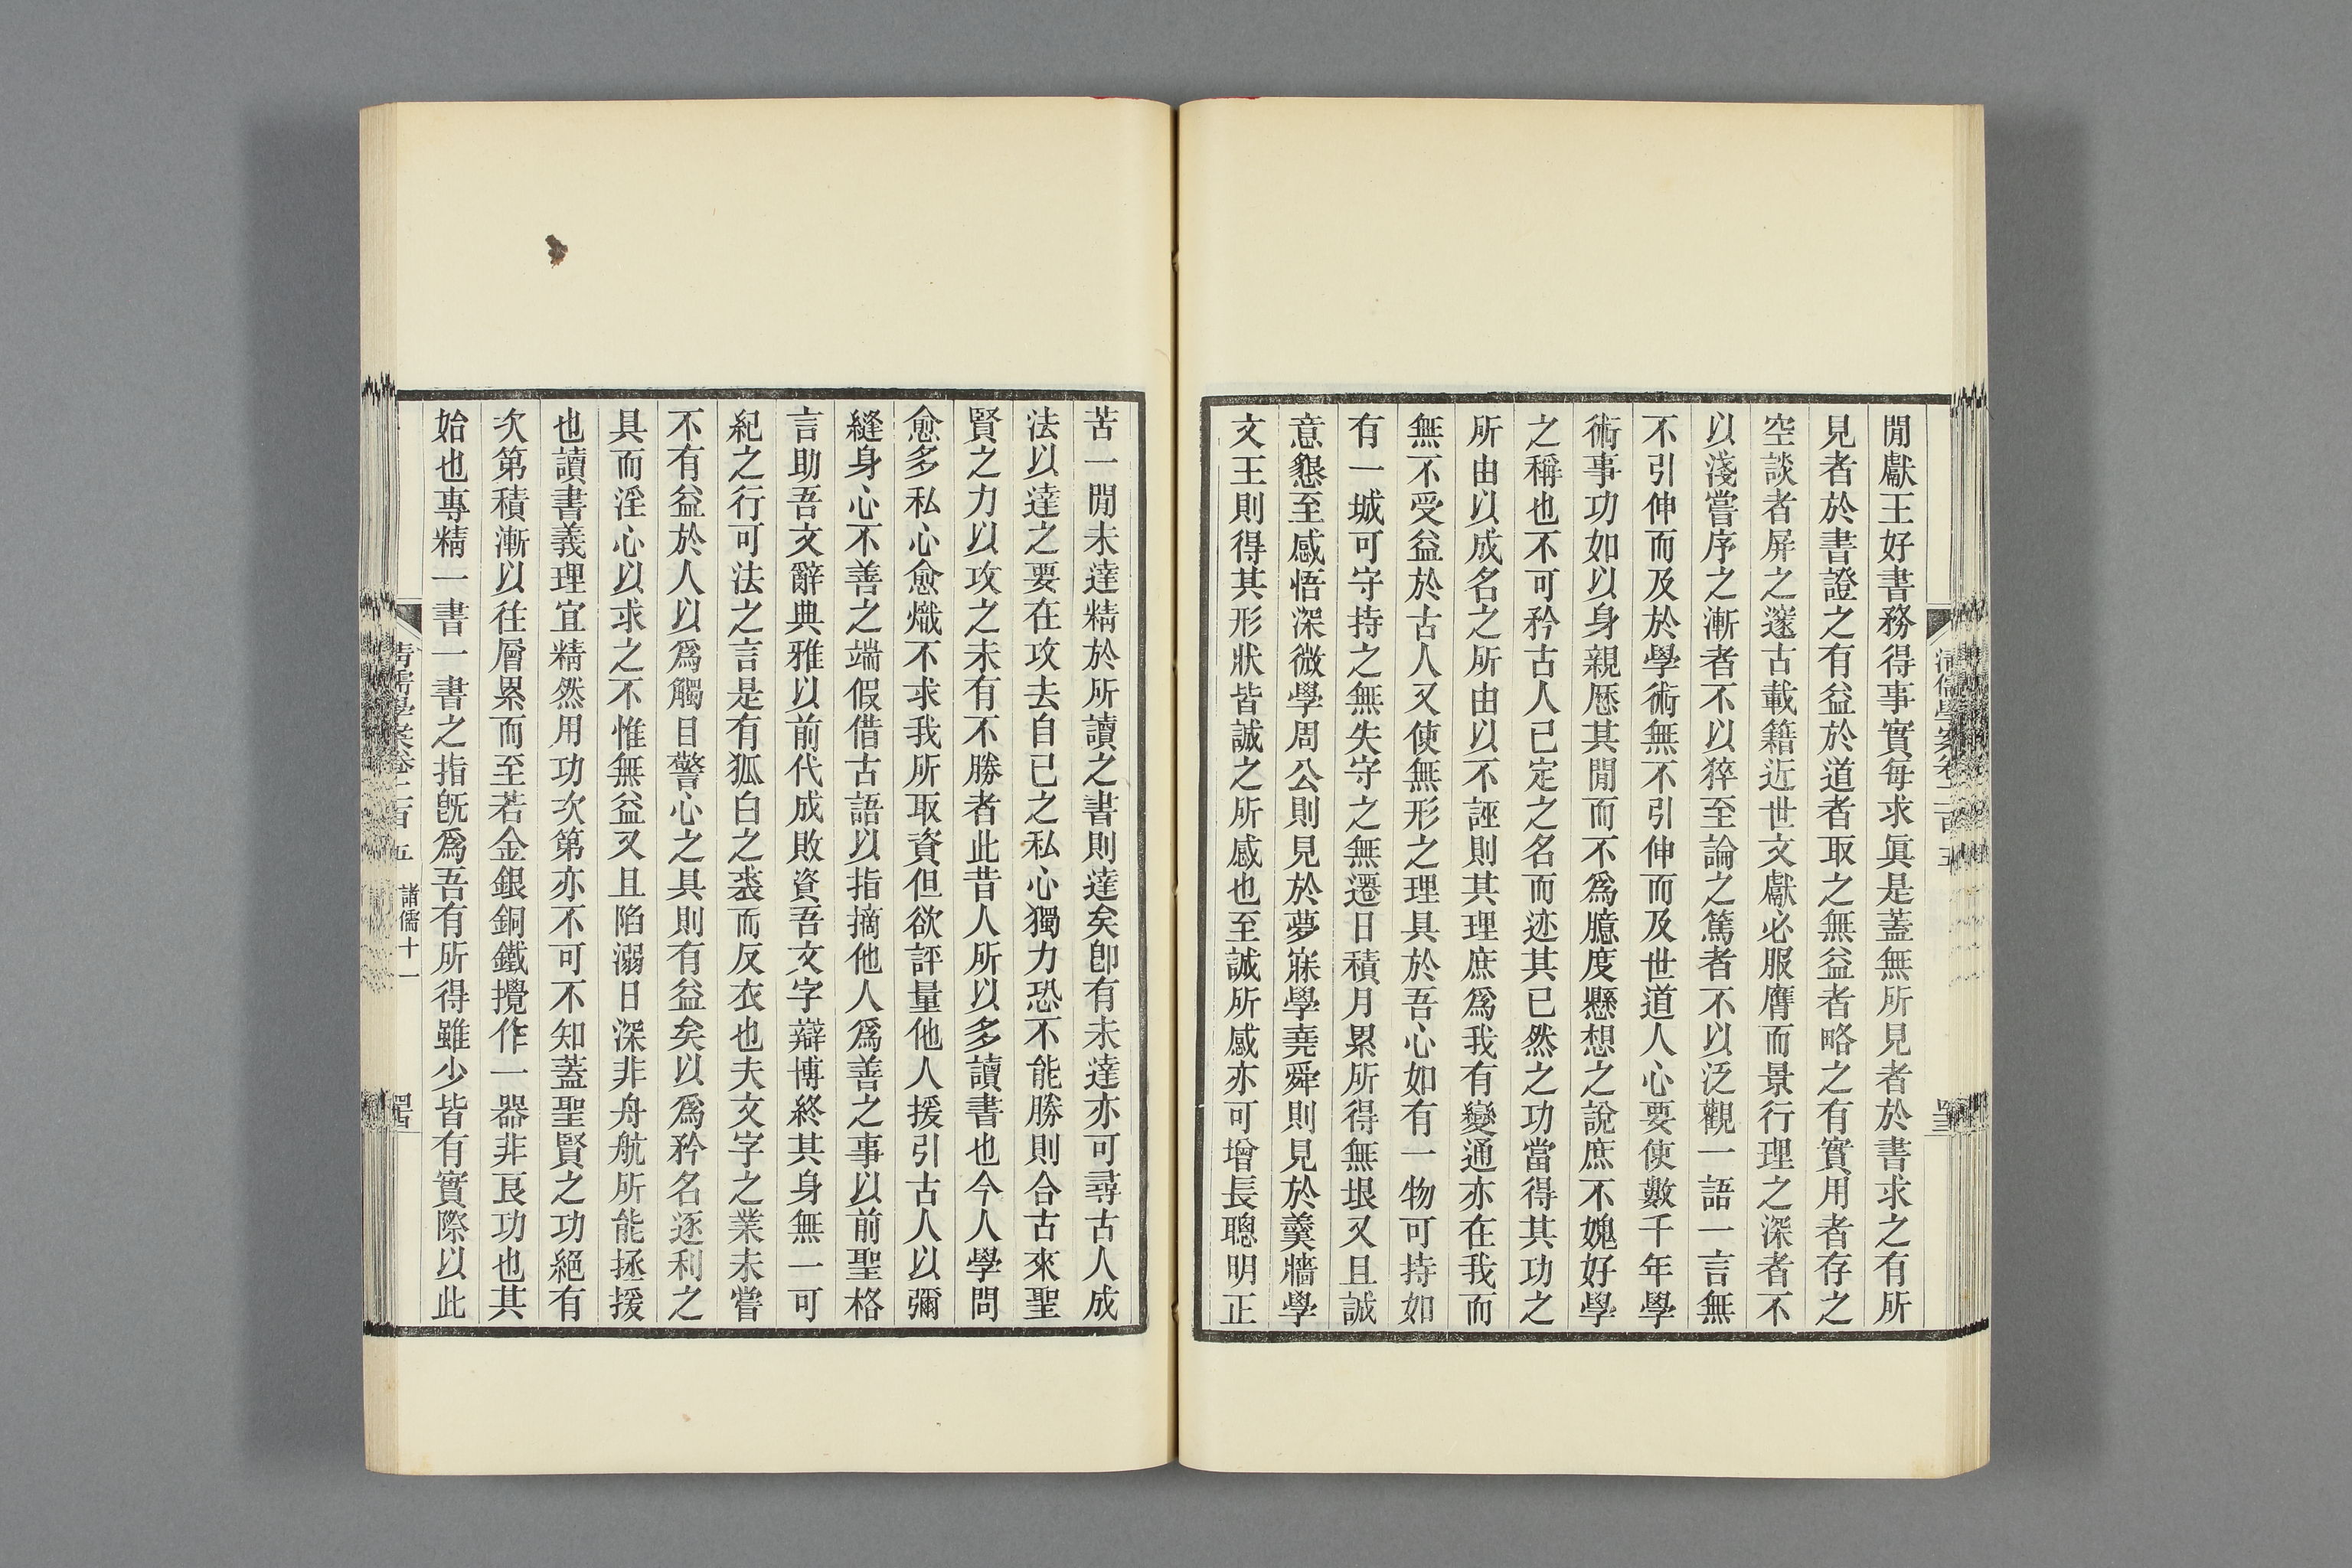 閒獻王好書務得事實每求眞是蓋無所見者於書求之有所
見者於書證之有益於道者取之無益者略之有實用者存之
空談者屏之邃古載籍近世文獻必服膺而景行理之深者不
以淺嘗序之漸者不以猝至論之篤者不以泛觀一語一言無
不引伸而及於學術無不引伸而及世道人心要使數千年學
術事功如以身親歷其閒而不爲臆度懸想之說庶不媿好學
之稱也不可矜古人已定之名而迹其已然之功當得其功之
所由以成名之所由以不誣則其理庶爲我有變通亦在我而
無不受益於古人又使無形之理具於吾心如有一物可持如
有一城可守持之無失守之無遷日積月累所得無垠又且誠
意懇至感悟深微學周公則見於夢寐學堯舜則見於羹牆學
文王則得其形狀皆誠之所感也至誠所感亦可增長聰明正
苦一閒未達精於所讀之書則達矣卽有未達亦可尋古人成
法以達之要在攻去自己之私心獨力恐不能勝則合古來聖
賢之力以攻之未有不勝者此昔人所以多讀書也今人學問
愈多私心愈熾不求我所取資但欲評量他人援引古人以彌
縫身心不善之端假借古語以指摘他人爲善之事以前聖格
言助吾文辭典雅以前代成敗資吾文字辯博終其身無一可
紀之行可法之言是有狐白之裘而反衣也夫文字之業未嘗
不有益於人以爲觸目警心之具則有益矣以爲矜名逐利之
具而淫心以求之不惟無益又且陷溺日深非舟航所能拯援
也讀書義理宜精然用功次第亦不可不知蓋聖賢之功絕有
次第積漸以往層累而至若金銀銅鐵攪作一器非良功也其
始也專精一書一書之指旣爲吾有所得雖少皆有實際以此
清儒學案卷二百五 諸儒十一